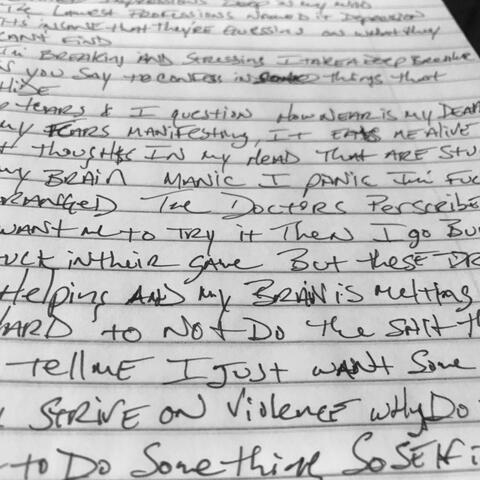 Impressions Deep in my mind
Lowest Professions Named it Depression
insane that they're guessing on what they
can't find
I'm Breaking and Stressing I take a deep Breathe
you say to confess in some things that
Hide
tears & I question How near is my Dea
my Fears Manifesting, it eats me alive
thoughts In my Head That are Stu
my Brain Manic I panic I'm Fuc
ranged The Doctors Perscribe
want me to try it Then I go Bu
uck in their game But these Dr
Helping And my Brain is melting
Hard to Not Do the shit th
tell me I Just want Some
Strive on Violence why Do
to Do Something So Selfi